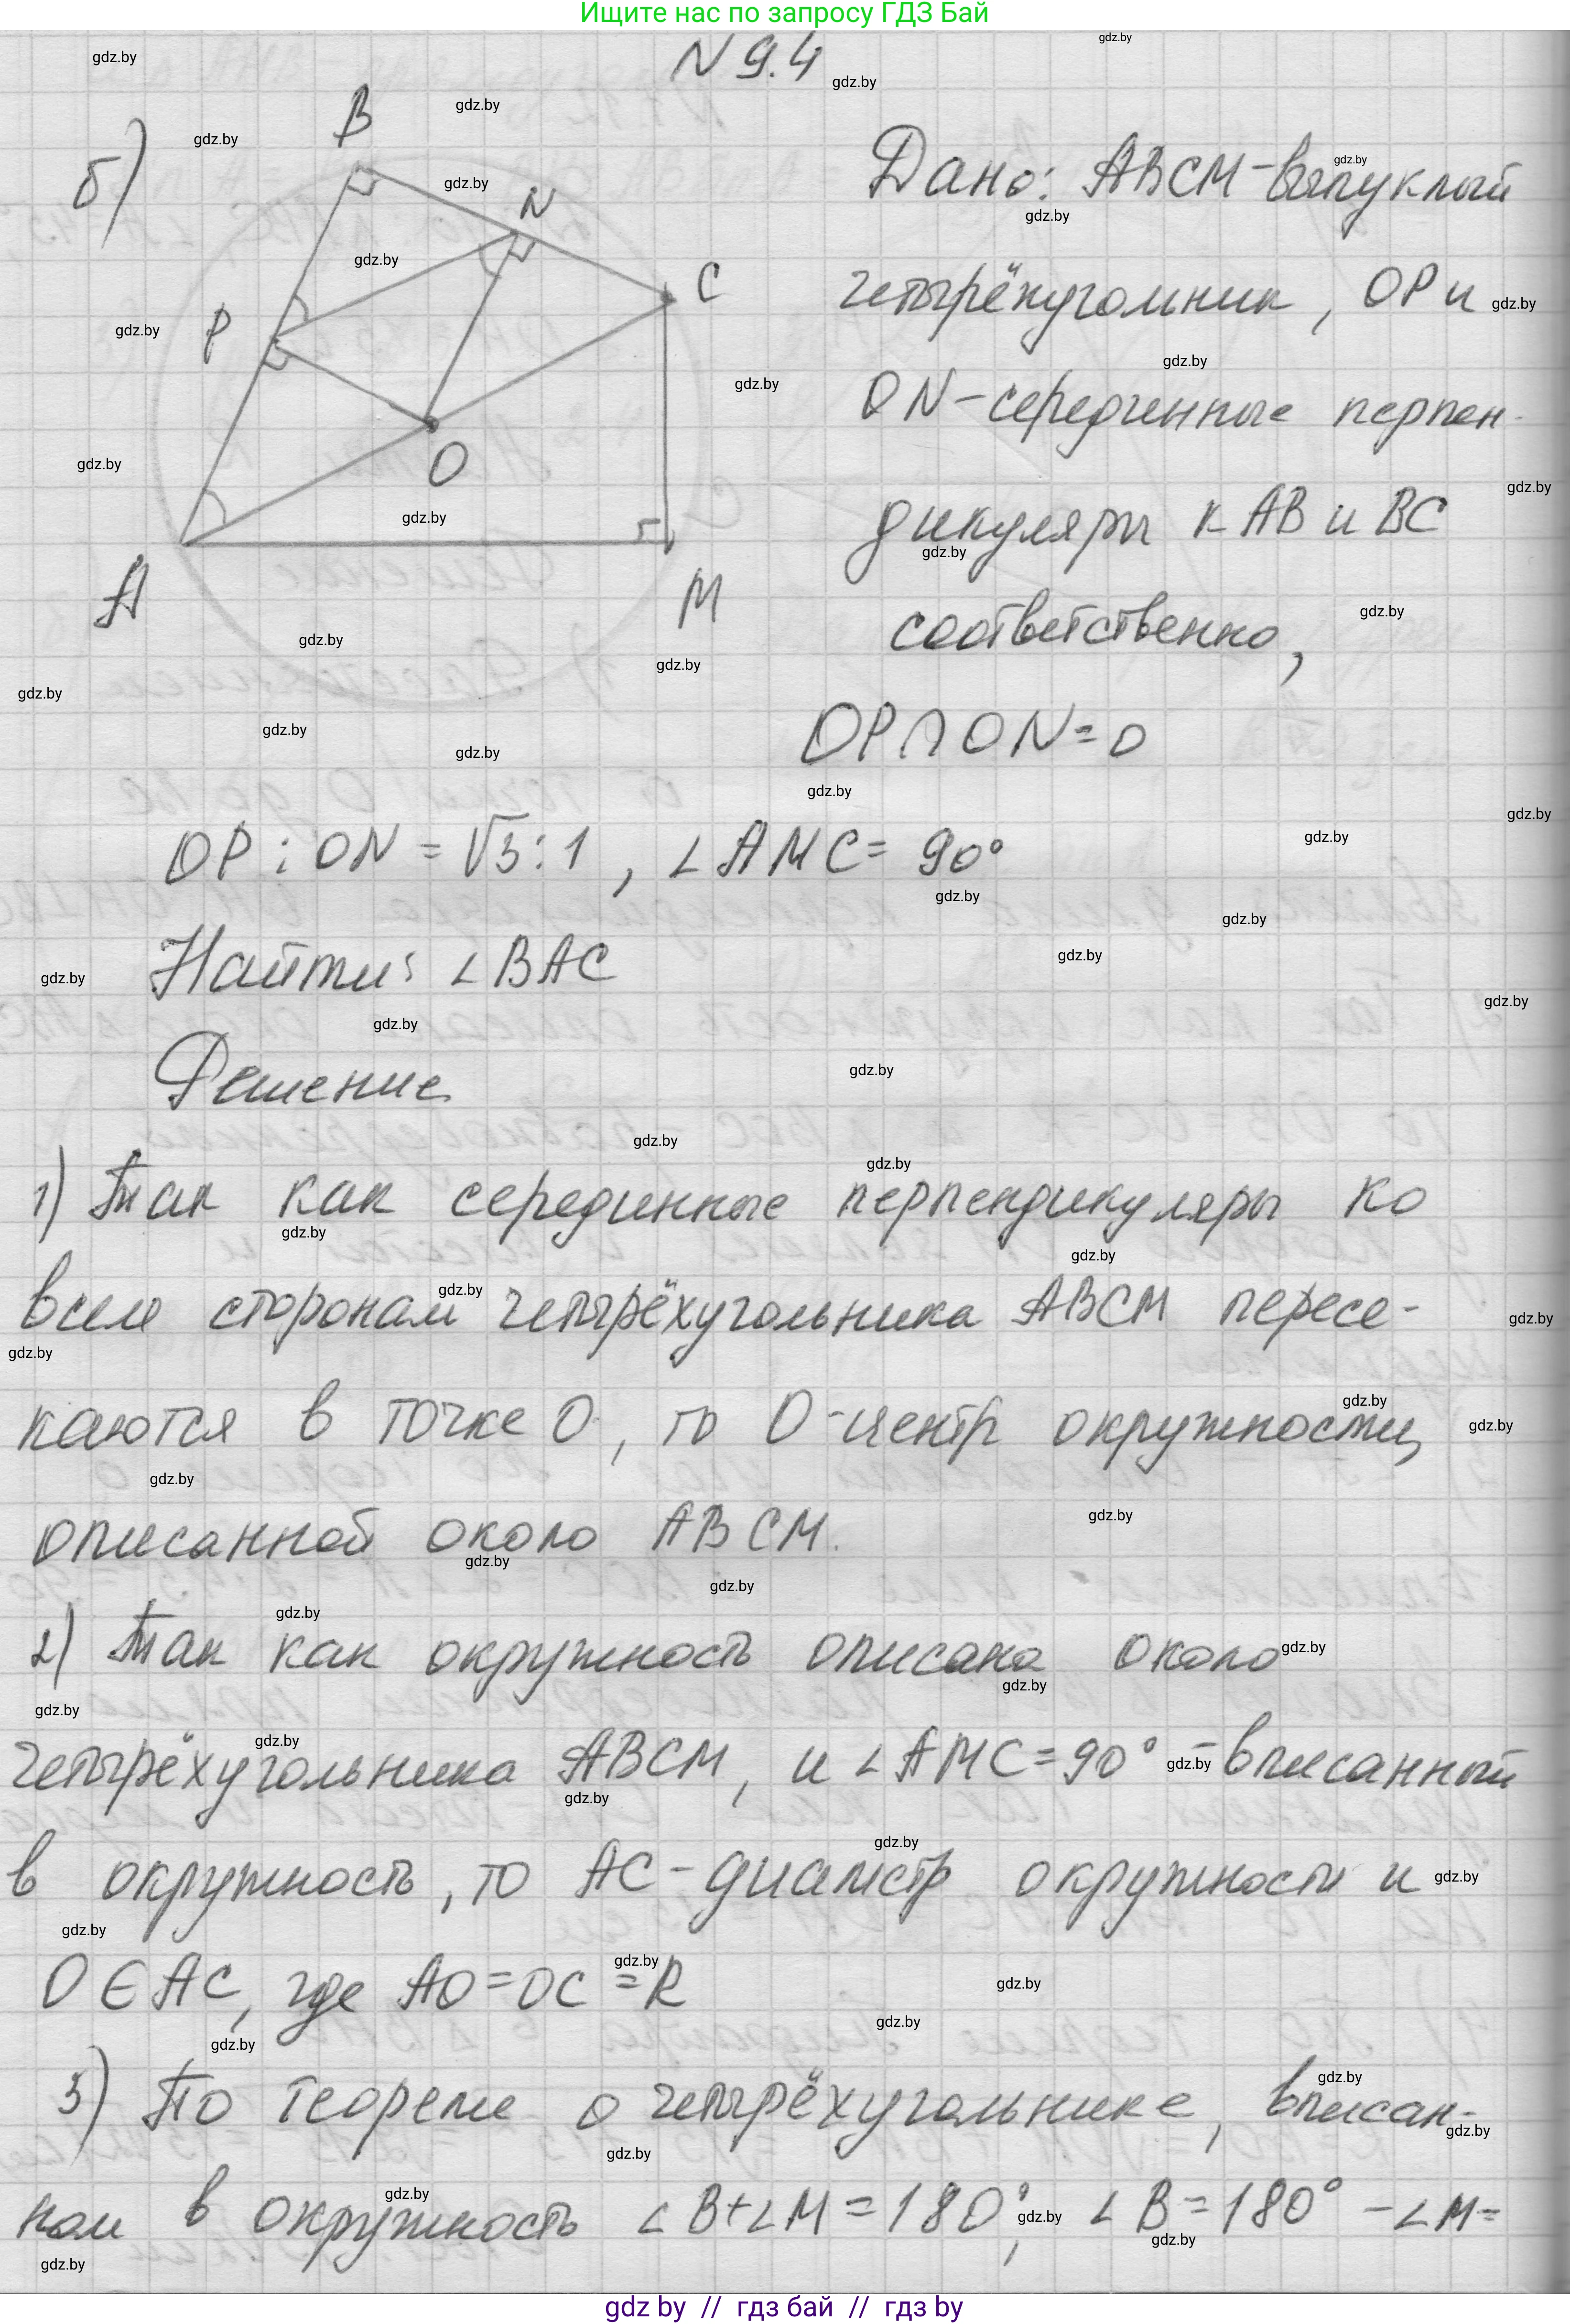 Ищите нас по запросу ГДЗ Бай
N 9.4
б)
B
N
C
P
O
A
M
Дано: ABCM - выпуклый
четырёхугольник, OP и
ON - серединные перпен-
дикуляры к AB и BC
соответственно,
OP ∩ ON = O
OP : ON = √3 : 1, ∠AMC = 90°
Найти: ∠BAC
Решение
1) Так как серединные перпендикуляры ко
всем сторонам четырёхугольника ABCM пересе-
каются в точке O, то O - центр окружности,
описанной около ABCM.
2) Так как окружность описана около
четырёхугольника ABCM, и ∠AMC = 90° - вписанный
в окружность, то AC - диаметр окружности и
O ∈ AC, где AO = OC = R
3) По теореме о четырёхугольнике, вписан-
ном в окружность ∠B + ∠M = 180°, ∠B = 180° - ∠M =
gdz by // гдз бай // гдз by